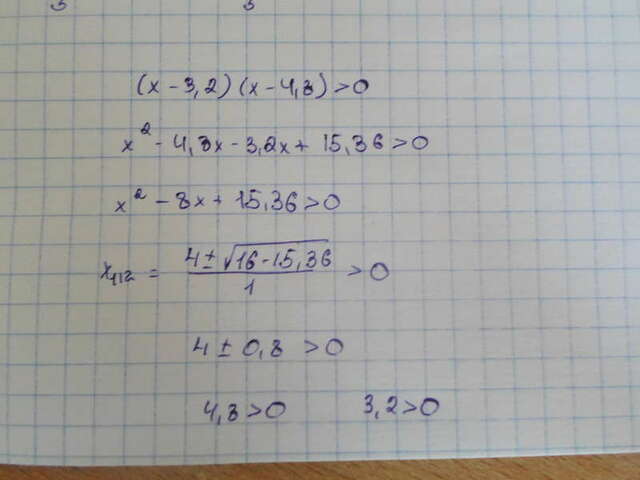 (x - 3,2) (x - 4,8) > 0
x² - 4,8x - 3,2x + 15,36 > 0
x² - 8x + 15,36 > 0
x₁,₂ = (4 ± √(16 - 15,36)) / 1 > 0
4 ± 0,8 > 0
4,8 > 0 3,2 > 0